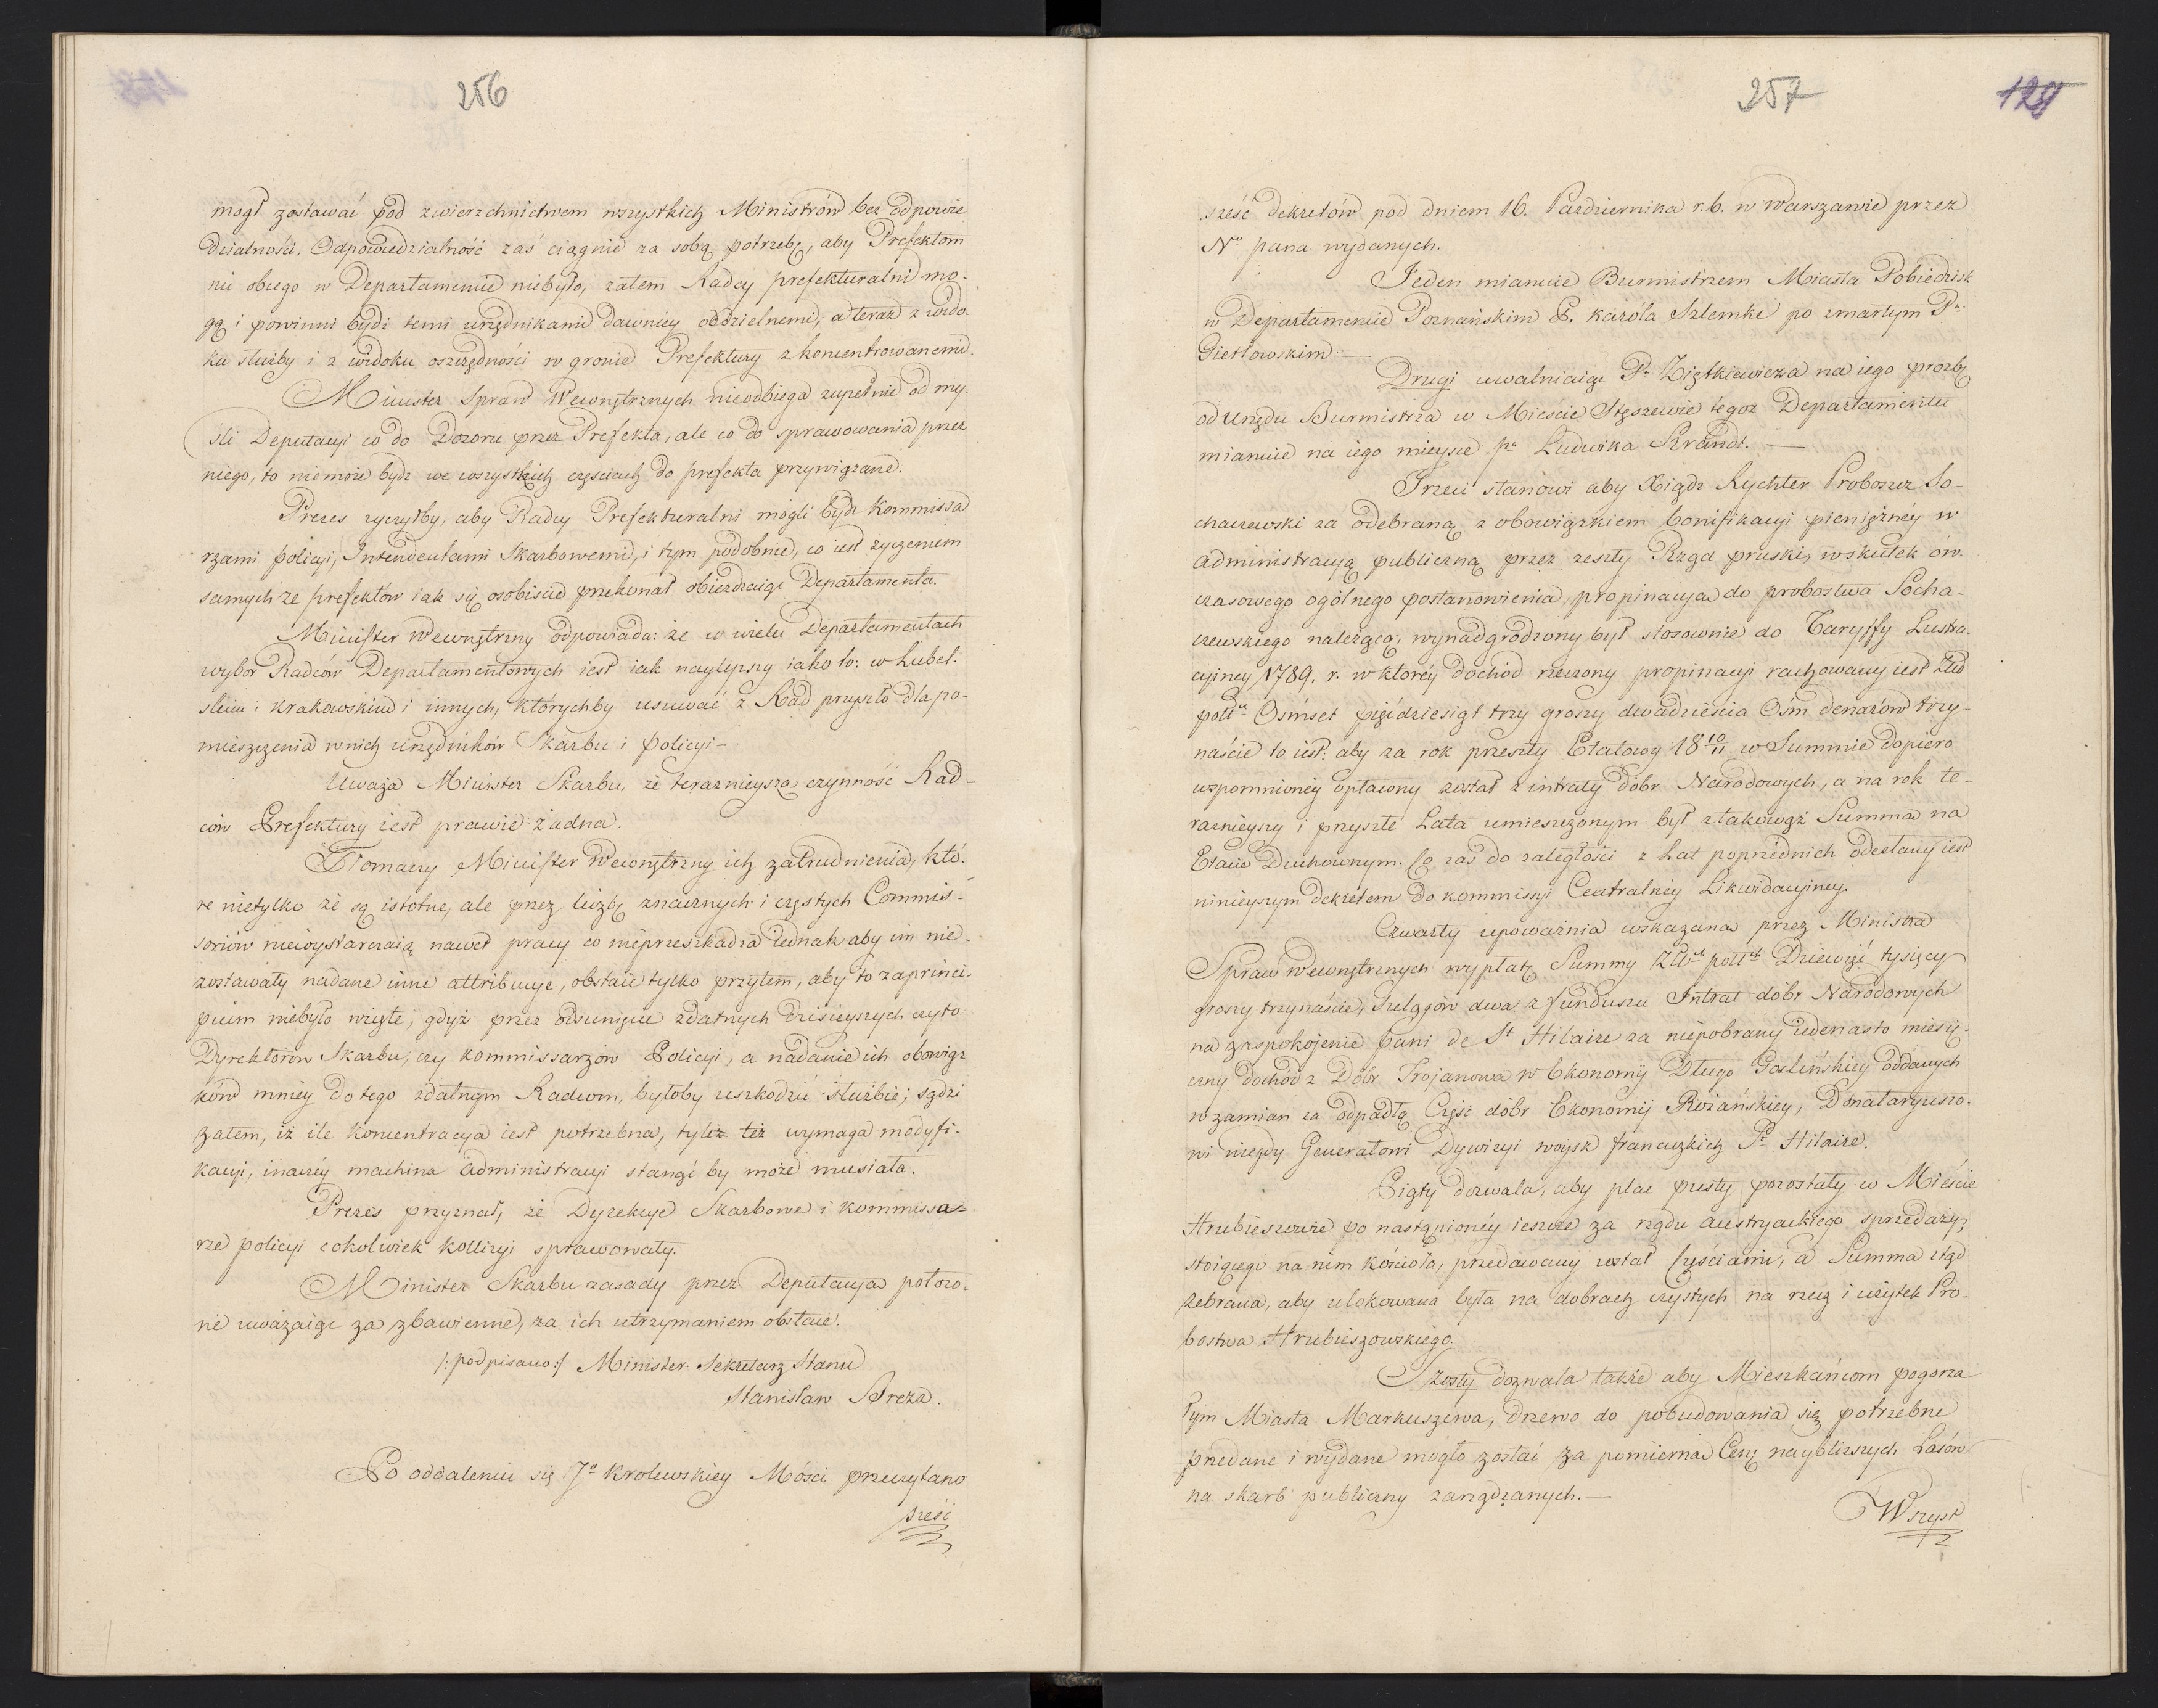 256
mogł zostawać pod zwierzchnictwem wszystkich Ministrów bez odpowie
dzialności. Odpowiedzialność zaś ciągnie za sobą potrzebę, aby Prefektom
nic obcego w Departamencie niebyło, zatem Radcy prefekturalni mo-
gą i powinni bydź temi urzędnikami dawniey oddzielnemi; a teraz z wido-
ku służby i z widoku oszczędności w gronie Prefektury zkoncentrowanemi.
Minister Spraw Wewnętrznych nieodbiega zupełnie od my-
śli Deputacyi co do Dozoru przez Prefekta, ale co do sprawowania przez
niego, to niemoże bydź we wszystkich częściach do prefekta przywiązane.
Prezes życzyłby, aby Radcy Prefekturalni mogli bydź Kommissa
rzami policyi, Intendentami Skarbowemi, i tym podobnie, co iest życzeniem
samych ze prefektów iak się osobiście przekonał obieżdzaiąc Departamenta.
Minister Wewnętrzny odpowiada: że w wielu Departamentach
wybor Radców Departamentowych iest iak naylepszy iako to: w Lubel-
skim i Krakowskim i innych, którychby usuwać z Rad przyszło dla po-
mieszczenia w nich urzędników Skarbu i policyi-
Uważa Minister Skarbu, że teraznieysza czynność Rad-
ców Prefektury iest prawie żadna.
Tłomaczy Minister Wewnętrzny ich zatrudnienia, któ-
re nietylko że są istotne, ale przez liczbę znacznych i częstych Commis-
soriów niewystarczaią nawet pracy co nieprzeszkadza iednak aby im nie-
zostawały nadane inne attribucye, obstaie tylko przytem, aby to za princi-
pium niebyło wzięte, gdyż przez odsunięcie zdatnych dzisieyszych czyto
Dyrektorów Skarbu, czy kommissarzów Policyi, a nadanie ich obowiąz
ków mniey do tego zdatnym Radcom, byłoby uszkodzić służbie; sądzi
zatem, iż ile koncentracya iest potrzebna, tyle też wymaga modyfi-
kacyi, inaczéy machina administracyi stanąć by może musiała.
Prezes przyznał, że Dyrekcye Skarbowe i kommissa-
rze policyi cokolwiek kollizyi sprawowały.
Minister Skarbu zasady przez Deputacya połozo-
ne uważaiąc za zbawienne, za ich utrzymaniem obstaie.
/:podpisano:/ Minister Sekretarz Stanu
Stanisław Breza.
Po oddaleniu się Jo Krolewskiey Mości przeczytano
sześć
257
129
sześć dekretów pod dniem 16. Pazdziernika r. b. w Warszawie przez
No pana wydanych.
Jeden mianuie Burmistrzem Miasta Pobiedzisk
w Departamencie Poznańskim P. Karóla Szlemke po zmarłym P.
Gietlowskim —
Drugi uwalniaiąc P. Ziętkiewicza na iego prozbę
od Urzędu Burmistrza w Mieście Stęszewie tegoz Departamentu
mianuie na iego mieysce pa Ludwika Szrandt. —
Trzeci stanowi aby Xiądz Rychter Proboszcz So-
chaczewski za odebraną z obowiązkiem bonifikacyi pieniężnéy w
administracyą publiczną przez zeszły Rząd pruski, wskutek ów-
czasowego ogólnego postanowienia, propinacya do probostwa Socha-
czewskiego należącą; wynadgrodzony był stosownie do Taryffy Lustra-
cyiney 1789. r. w któréy dochód rzeczony propinacyi rachowany iest Złd
polld Ośmset pięćdziesiąt trzy groszy dwadzieścia Ośm denarów trzy-
naście to iest: aby za rok przeszły Etatowy 18 10/11 w Summie dopiero
wspomnioney opłacony został z intraty dóbr Narodowych, a na rok te-
raznieyszy i przyszłe Lata umieszczonym był z takowąż Summa na
Etacie Duchownym. Co zas do zaległości z Lat poprzednich odesłany iest
ninieyszym dekretem do kommissyi Centralnéy Likwidacyiney.
Czwarty upoważnia wskazana przez Ministra
Spraw wewnętrznych wypłatę Summy Złch pollch Dziewięć tysięcy
groszy trzynaście, szelągów dwa z funduszu Intrat dóbr Narodowych
na zaspokojenie pani de St Hilaire za niepobrany iedenasto miesię-
czny dochód z Dóbr Trojanowa w Ekonomij Długo Goslińskiey oddanych
w zamian za odpadłą Część dóbr Ekonomij Rożańskiey, Donataryuszo-
wi niegdy Generałowi Dywizyi woysk francuzkich St Hilaire.
Piąty dozwala, aby plac pusty pozostały w Mieście
Hrubieszowie po nastąpionéy ieszcze za rządu austryackiego sprzedaży,
stoiącego na nim kościoła, przedawany został częściami, a Summa ztąd
zebrana, aby ulokowana była na dobrach czystych na rzecz i użytek Pro-
bostwa Hrubieszowskiego.
Szosty dozwala także aby Mieszkańcom pogorza
łym Miasta Markuszewa, drzewo do pobudowania się potrzebne
przedane i wydane mogło zostać za pomierna Cenę nayblizszych Lasów
na skarb publiczny zarządzanych.—
Wszyst